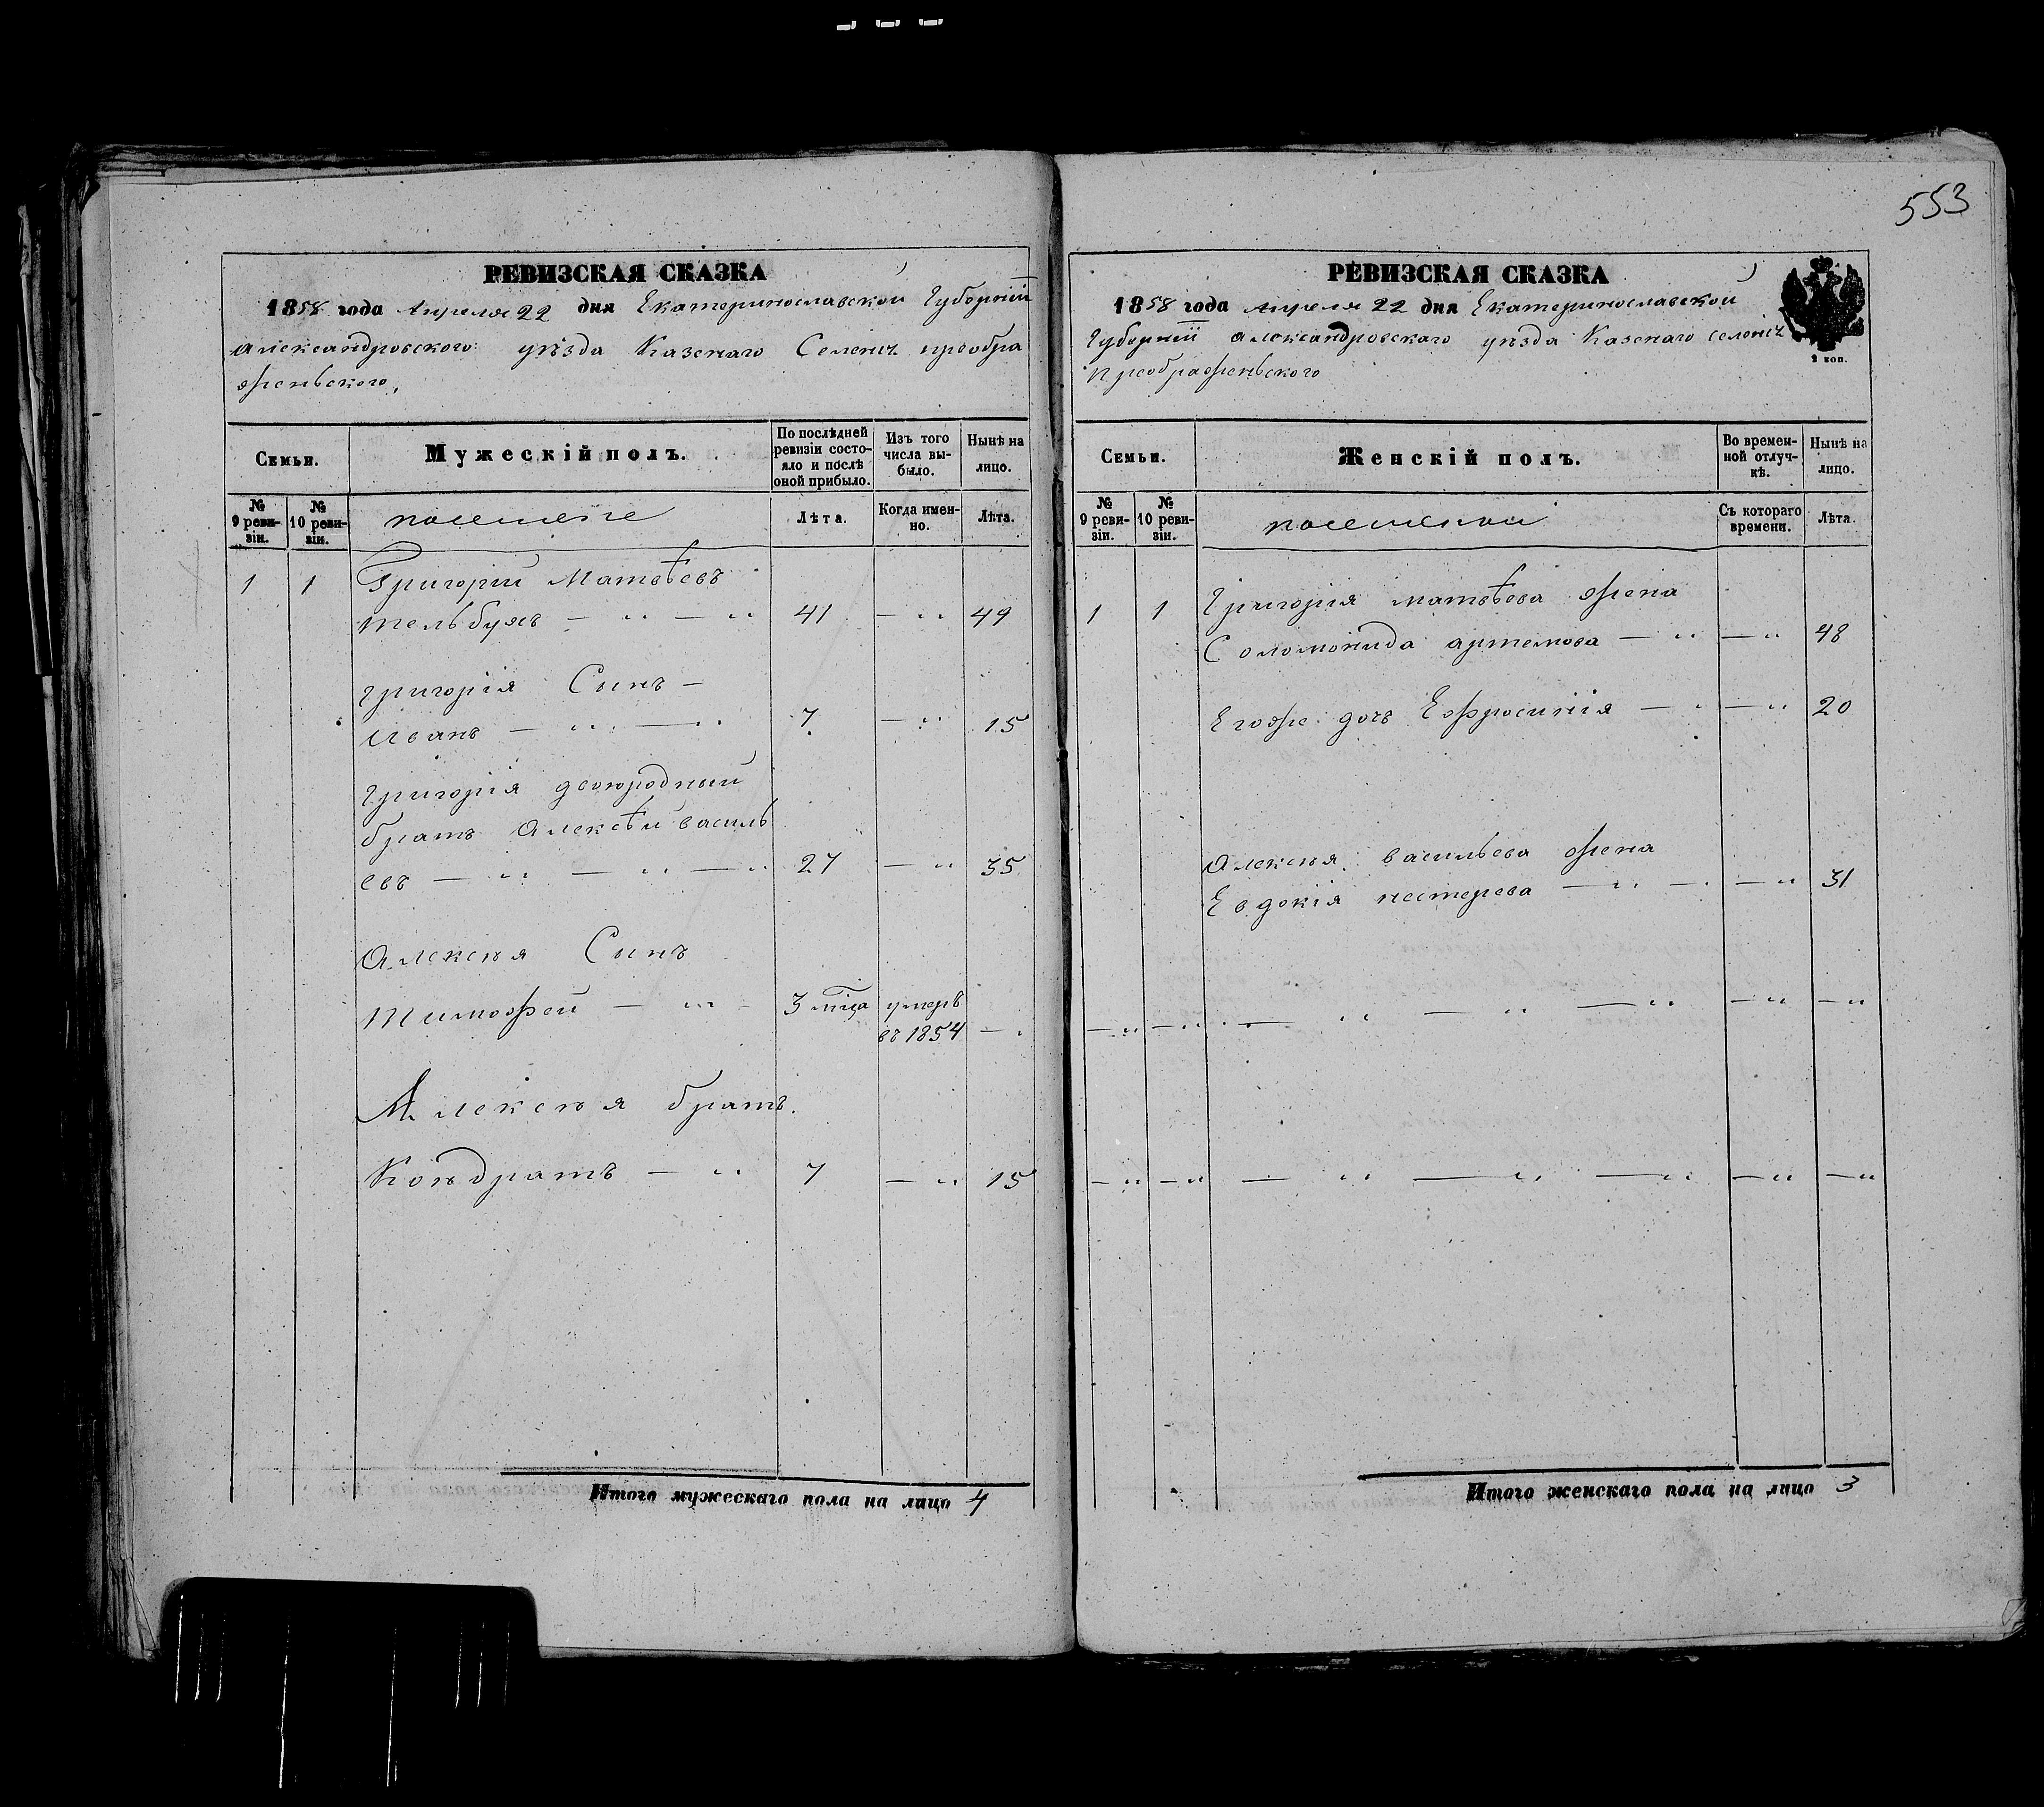 553
РЕВИЗСКАЯ СКАЗКА
1858 года Апреля 22 дня Екатеринославской Губернїи
Александровского уѣзда Казенаго Селенія преобра
женьского,
Семьи.
Мужескій полъ.
По послѣдней ревизіи состояло и послѣ оной прибыло.
Изъ того числа выбыло.
Нынѣ на лицо.
№ 9 ревизіи.
№ 10 ревизіи.
Лѣта.
Когда именно.
Лѣта.
1 1 Григорий Матвѣевъ
тельбухъ — " — " 41 — " 49
григорія Сынъ —
Иванъ — " — " 7 — " 15
григорія двоюродный
братъ Алексѣй василь
евъ — " — " — " 27 — " 35
Алексѣя Сынъ
Тимофей — " — 3 мца умеръ
въ 1854 — "
Алексѣя братъ.
Кондратъ — " 7 — " 15
Итого мужескаго пола на лицо 4
РЕВИЗСКАЯ СКАЗКА
1858 года Апреля 22 дня Екатеринославской
Губерніи Александровскаго уѣзда Казенаго селенія
Преображеньского
2 коп.
Семьи.
Женскій полъ.
Во временной отлучкѣ.
Нынѣ на лицо.
№ 9 ревизіи.
№ 10 ревизіи.
Съ котораго времени.
Лѣта.
1 1 Григорія матвѣева жена
Соломонида артемова — " — " 48
Егоже дочь Ефросинія — " — " 20
Алексѣя васильева жена
Евдокія нестерева — " — " — " 31
— " — " — " — " — " — " — "
— " — " — " — " — " — " — "
Итого женскаго пола на лицо 3